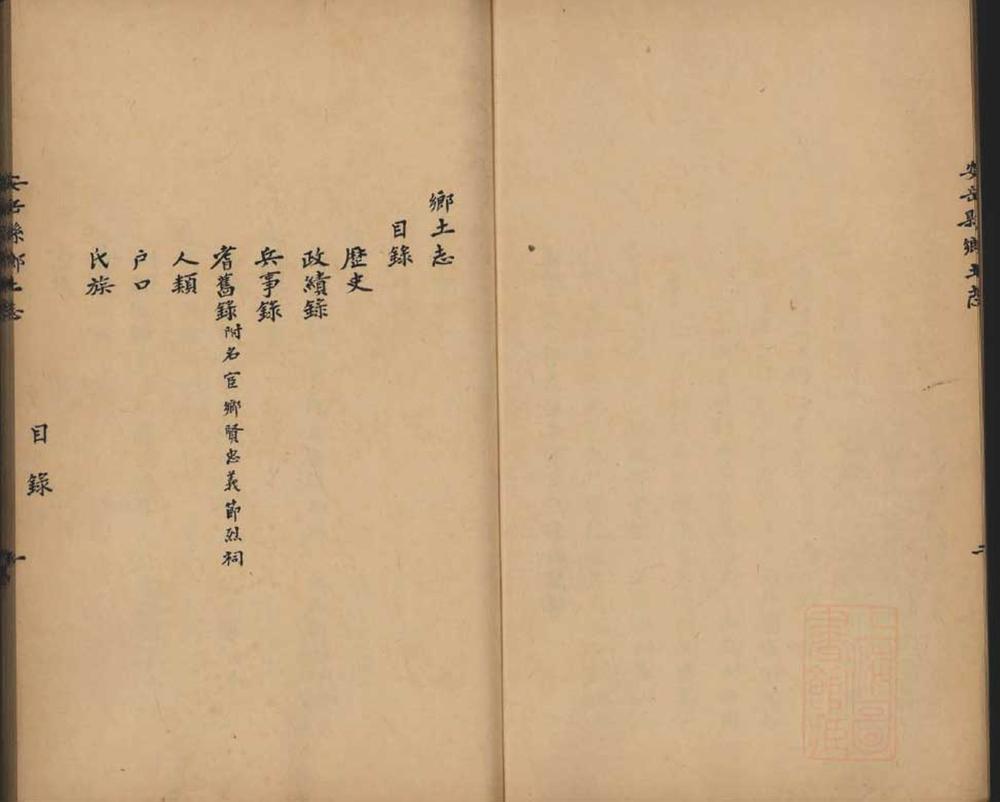 安岳縣鄉土志
二
鄉土志
目錄
歷史
政績錄
兵事錄
耆舊錄附名宦鄉賢忠義節烈祠
人類
户口
氏族
目錄
一
安岳縣鄉土志
上海圖書館藏